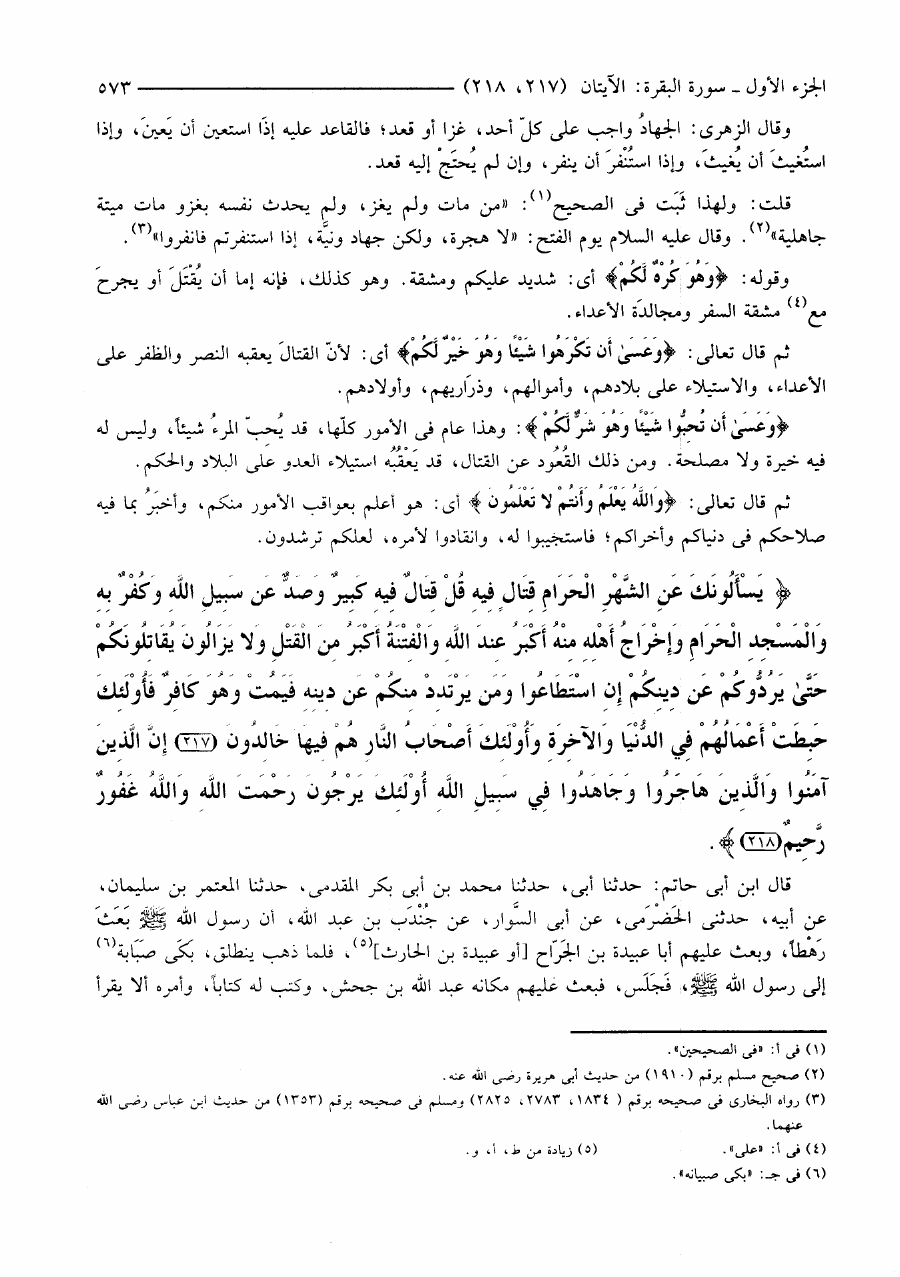 الجزء الأول ـ سورة البقرة: الآيتان (٢١٧، ٢١٨) ٥٧٣
وقال الزهرى: الجهادُ واجب على كلّ أحد، غزا أو قعد؛ فالقاعد عليه إذَا استعين أن يَعينَ، وإذا
استُغيثَ أن يُغيثَ، وإذا استُنْفرَ أن ينفر، وإن لم يُحتَجْ إليه قعد.
قلت: ولهذا ثَبَت فى الصحيح(١): «من مات ولم يغز، ولم يحدث نفسه بغزو مات ميتة
جاهلية»(٢). وقال عليه السلام يوم الفتح: «لا هجرة، ولكن جهاد ونيَّة، إذا استنفرتم فانفروا»(٣).
وقوله: ﴿وَهُوَ كُرْهٌ لَّكُمْ﴾ أى: شديد عليكم ومشقة. وهو كذلك، فإنه إما أن يُقْتَلَ أو يجرحَ
مع(٤) مشقة السفر ومجالدَة الأعداء.
ثم قال تعالى: ﴿وَعَسَىٰ أَن تَكْرَهُوا شَيْئًا وَهُوَ خَيْرٌ لَّكُمْ﴾ أى: لأنّ القتالَ يعقبه النصر والظفر على
الأعداء، والاستيلاء على بلادهم، وأموالهم، وذرَاريهم، وأولادهم.
﴿وَعَسَىٰ أَن تُحِبُّوا شَيْئًا وَهُوَ شَرٌّ لَّكُمْ﴾: وهذا عام فى الأمور كلّها، قد يُحبّ المرءُ شيئاً، وليس له
فيه خيرة ولا مصلحة. ومن ذلك القُعُود عن القتال، قد يَعْقُبُه استيلاء العدو على البلاد والحكم.
ثم قال تعالى: ﴿وَاللَّهُ يَعْلَمُ وَأَنتُمْ لا تَعْلَمُونَ﴾ أى: هو أعلم بعواقب الأمور منكم، وأخبَرُ بما فيه
صلاحكم فى دنياكم وأخراكم؛ فاستجيبوا له، وانقادوا لأمره، لعلكم ترشدون.
﴿يَسْأَلُونَكَ عَنِ الشَّهْرِ الْحَرَامِ قِتَالٍ فِيهِ قُلْ قِتَالٌ فِيهِ كَبِيرٌ وَصَدٌّ عَن سَبِيلِ اللَّهِ وَكُفْرٌ بِهِ
وَالْمَسْجِدِ الْحَرَامِ وَإِخْرَاجُ أَهْلِهِ مِنْهُ أَكْبَرُ عِندَ اللَّهِ وَالْفِتْنَةُ أَكْبَرُ مِنَ الْقَتْلِ وَلا يَزَالُونَ يُقَاتِلُونَكُمْ
حَتَّىٰ يَرُدُّوكُمْ عَن دِينِكُمْ إِنِ اسْتَطَاعُوا وَمَن يَرْتَدِدْ مِنكُمْ عَن دِينِهِ فَيَمُتْ وَهُوَ كَافِرٌ فَأُوْلَئِكَ
حَبِطَتْ أَعْمَالُهُمْ فِي الدُّنْيَا وَالآخِرَةِ وَأُوْلَئِكَ أَصْحَابُ النَّارِ هُمْ فِيهَا خَالِدُونَ (٢١٧) إِنَّ الَّذِينَ
آمَنُوا وَالَّذِينَ هَاجَرُوا وَجَاهَدُوا فِي سَبِيلِ اللَّهِ أُوْلَئِكَ يَرْجُونَ رَحْمَتَ اللَّهِ وَاللَّهُ غَفُورٌ
رَّحِيمٌ (٢١٨)﴾.
قال ابن أبى حاتم: حدثنا أبى، حدثنا محمد بن أبى بكر المقدمى، حدثنا المعتمر بن سليمان،
عن أبيه، حدثنى الحَضْرَمى، عن أبى السَّوار، عن جُنْدَب بن عبد الله، أن رسول الله ﷺ بَعَثَ
رَهْطاً، وبعث عليهم أبا عبيدة بن الجَرّاح [أو عبيدة بن الحارث](٥)، فلما ذهب ينطلق، بكَى صبَابة(٦)
إلى رسول الله ﷺ، فَجَلَس، فبعث عليهم مكانه عبد الله بن جحش، وكتب له كتاباً، وأمره ألا يقرأ
(١) فى أ: «فى الصحيحين».
(٢) صحيح مسلم برقم (١٩١٠) من حديث أبى هريرة رضى الله عنه.
(٣) رواه البخارى فى صحيحه برقم ( ١٨٣٤، ٢٧٨٣، ٢٨٢٥) ومسلم فى صحيحه برقم (١٣٥٣) من حديث ابن عباس رضى الله
عنهما.
(٤) فى أ: «على». (٥) زيادة من ط، أ، و.
(٦) فى جـ: «بكى صبيانه».